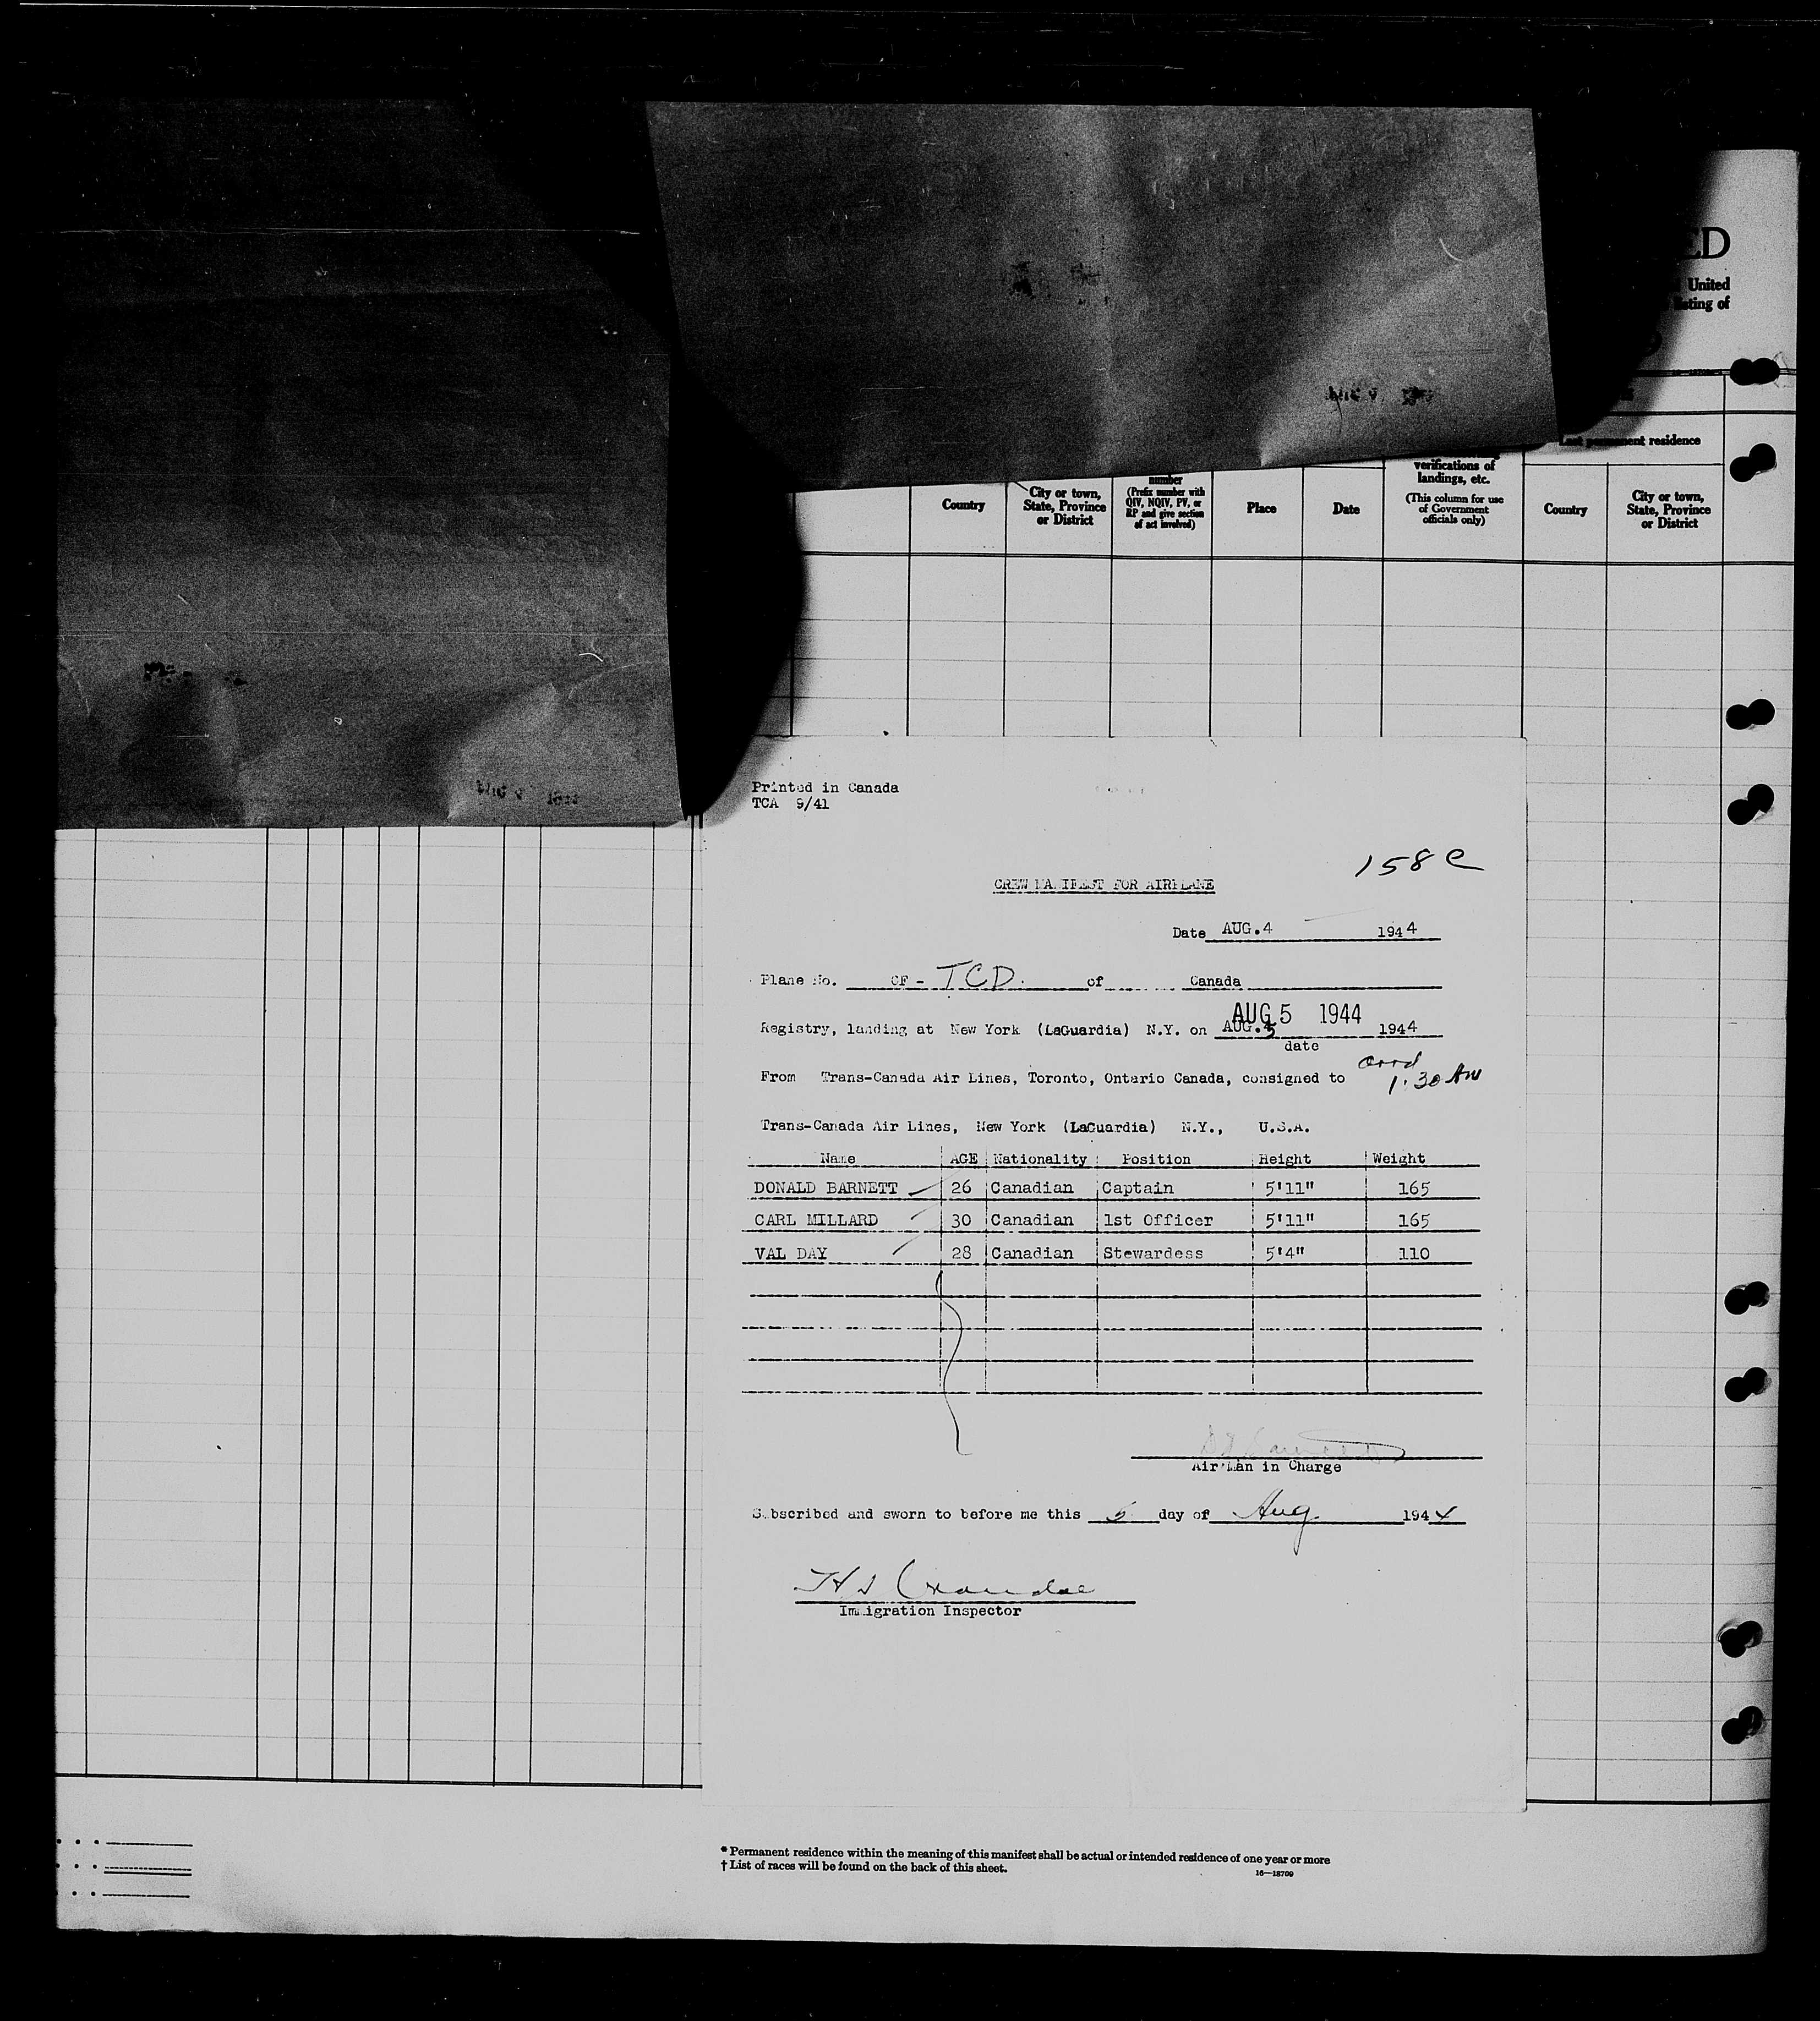 ED
United
listing of
Last permanent residence
verifications of
landings, etc.
(This column for use
of Government
officials only)
number
(Prefix number with
QIV, NQIV, PV, or
RP and give section
of act involved)
Country
City or town,
State, Province
or District
Place
Date
Country
City or town,
State, Province
or District
Printed in Canada
TCA 9/41
158 C
CREW MANIFEST FOR AIRPLANE
Date AUG.4 1944
Plane No. CF - TCD. of Canada
AUG 5 1944
Registry, landing at New York (LaGuardia) N.Y. on AUG.5 1944
date
From Trans-Canada Air Lines, Toronto, Ontario Canada, consigned to
1:30 AM
Trans-Canada Air Lines, New York (LaGuardia) N.Y., U.S.A.
Name AGE Nationality Position Height Weight
DONALD BARNETT 26 Canadian Captain 5'11" 165
CARL MILLARD 30 Canadian 1st Officer 5'11" 165
VAL DAY 28 Canadian Stewardess 5'4" 110
Air Man in Charge
Subscribed and sworn to before me this 5 day of Aug. 1944
Immigration Inspector
* Permanent residence within the meaning of this manifest shall be actual or intended residence of one year or more
† List of races will be found on the back of this sheet.
16—18709